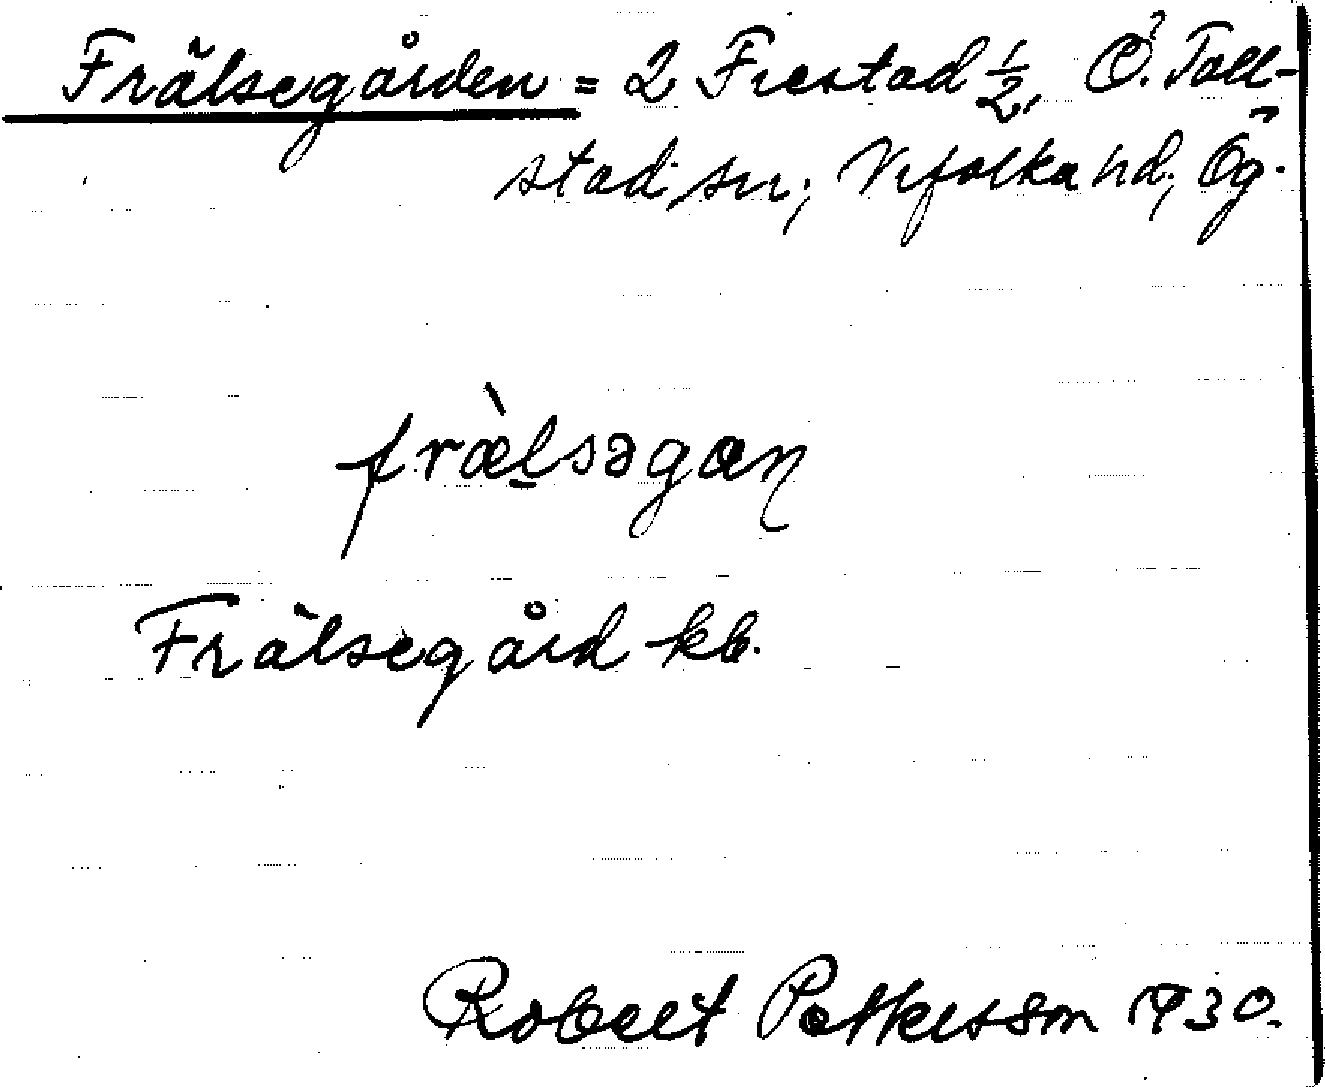 Frälsegården = 2 Frestad ½, Ö. Toll-
stad sn; Vifolka hd; Ög.
frælsəgaɳ
Frälsegård kb.
Robert Petterson 1930.